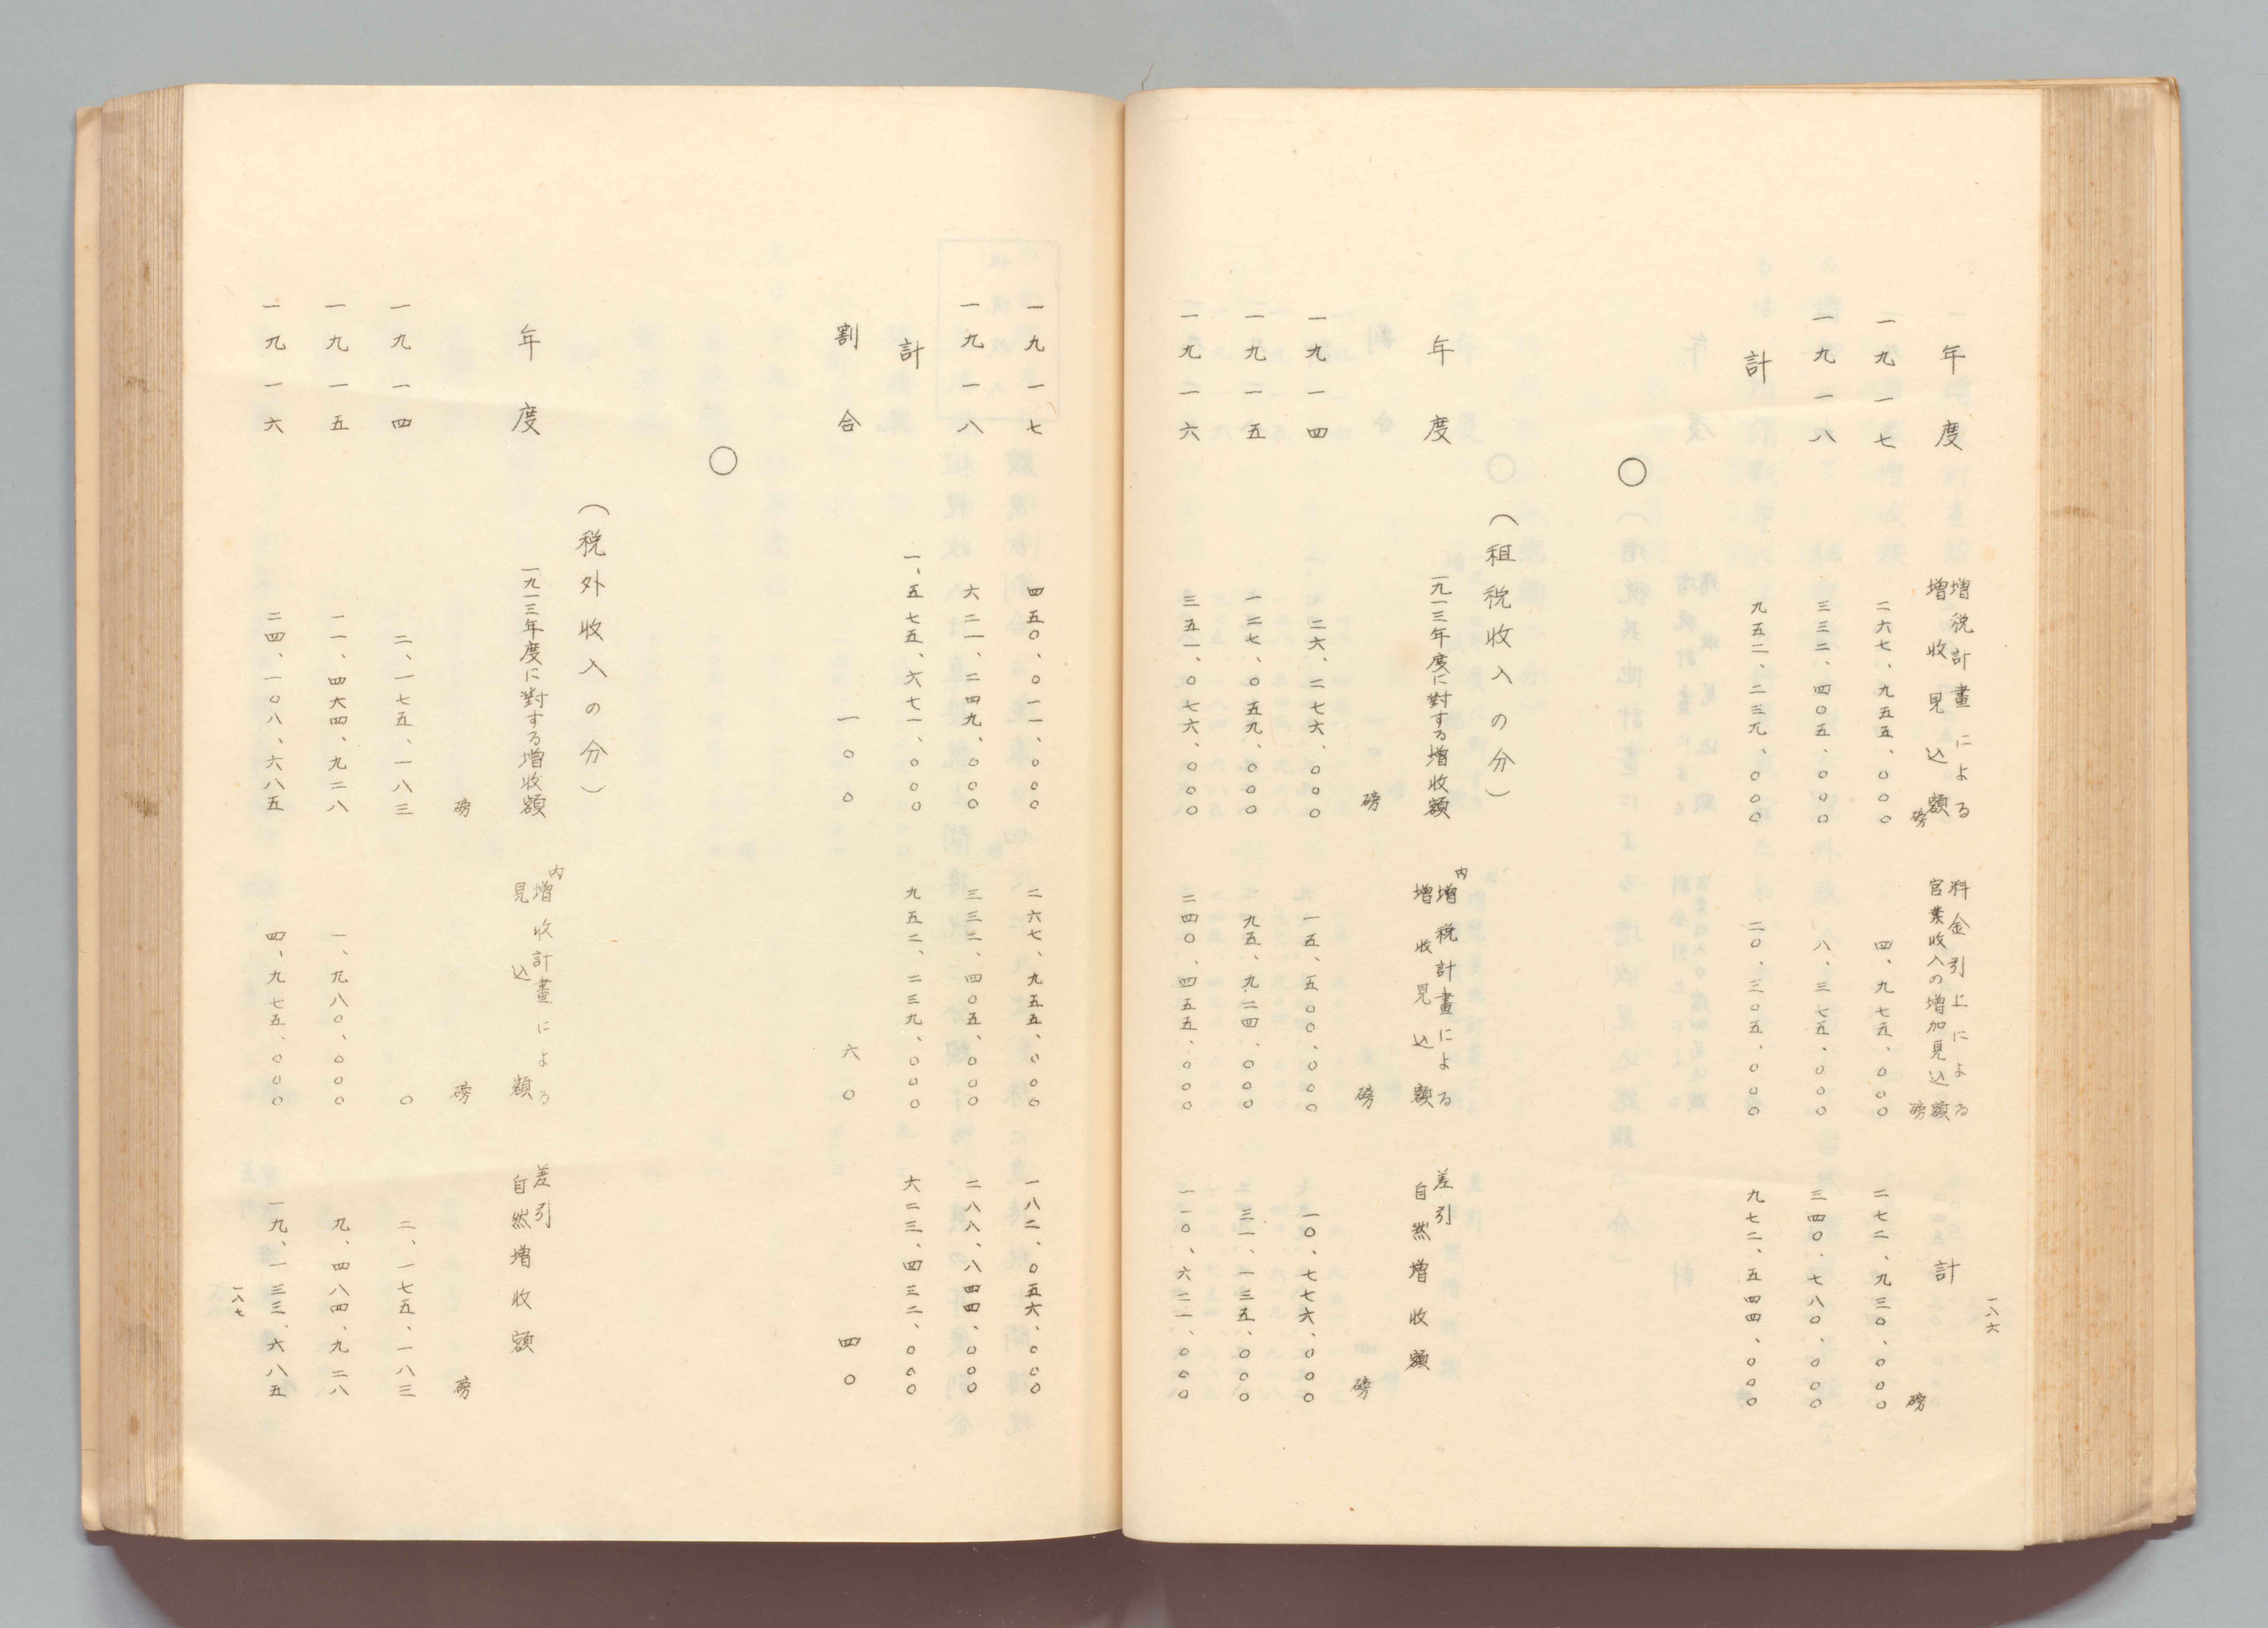 一八六
年度　増税計畫による増收見込額　料金引上による官業收入の増加見込額　計
磅　磅　磅
一九一七　二六七、九五五、〇〇〇　四、九七五、〇〇〇　二七二、九三〇、〇〇〇
一九一八　三三二、四〇五、〇〇〇　八、三七五、〇〇〇　三四〇、七八〇、〇〇〇
計　九五二、二三九、〇〇〇　二〇、三〇五、〇〇〇　九七二、五四四、〇〇〇
○
（租税收入の分）
年度　一九一三年度に對する増收額　内増税計畫による増收見込額　差引自然増收額
磅　磅　磅
一九一四　二六、二七六、〇〇〇　一五、五〇〇、〇〇〇　一〇、七七六、〇〇〇
一九一五　一二七、〇五九、〇〇〇　九五、九二四、〇〇〇　三一、一三五、〇〇〇
一九一六　三五一、〇七六、〇〇〇　二四〇、四五五、〇〇〇　一一〇、六二一、〇〇〇
一九一七　四五〇、〇一一、〇〇〇　二六七、九五五、〇〇〇　一八二、〇五六、〇〇〇
一九一八　六二一、二四九、〇〇〇　三三二、四〇五、〇〇〇　二八八、八四四、〇〇〇
計　一、五七五、六七一、〇〇〇　九五二、二三九、〇〇〇　六二三、四三二、〇〇〇
割合　一〇〇　六〇　四〇
○
（税外收入の分）
年度　一九一三年度に對する増收額　内増收計畫による見込額　差引自然増收額
磅　磅　磅
一九一四　二、一七五、一八三　〇　二、一七五、一八三
一九一五　一一、四六四、九二八　一、九八〇、〇〇〇　九、四八四、九二八
一九一六　二四、一〇八、六八五　四、九七五、〇〇〇　一九、一三三、六八五
一八七